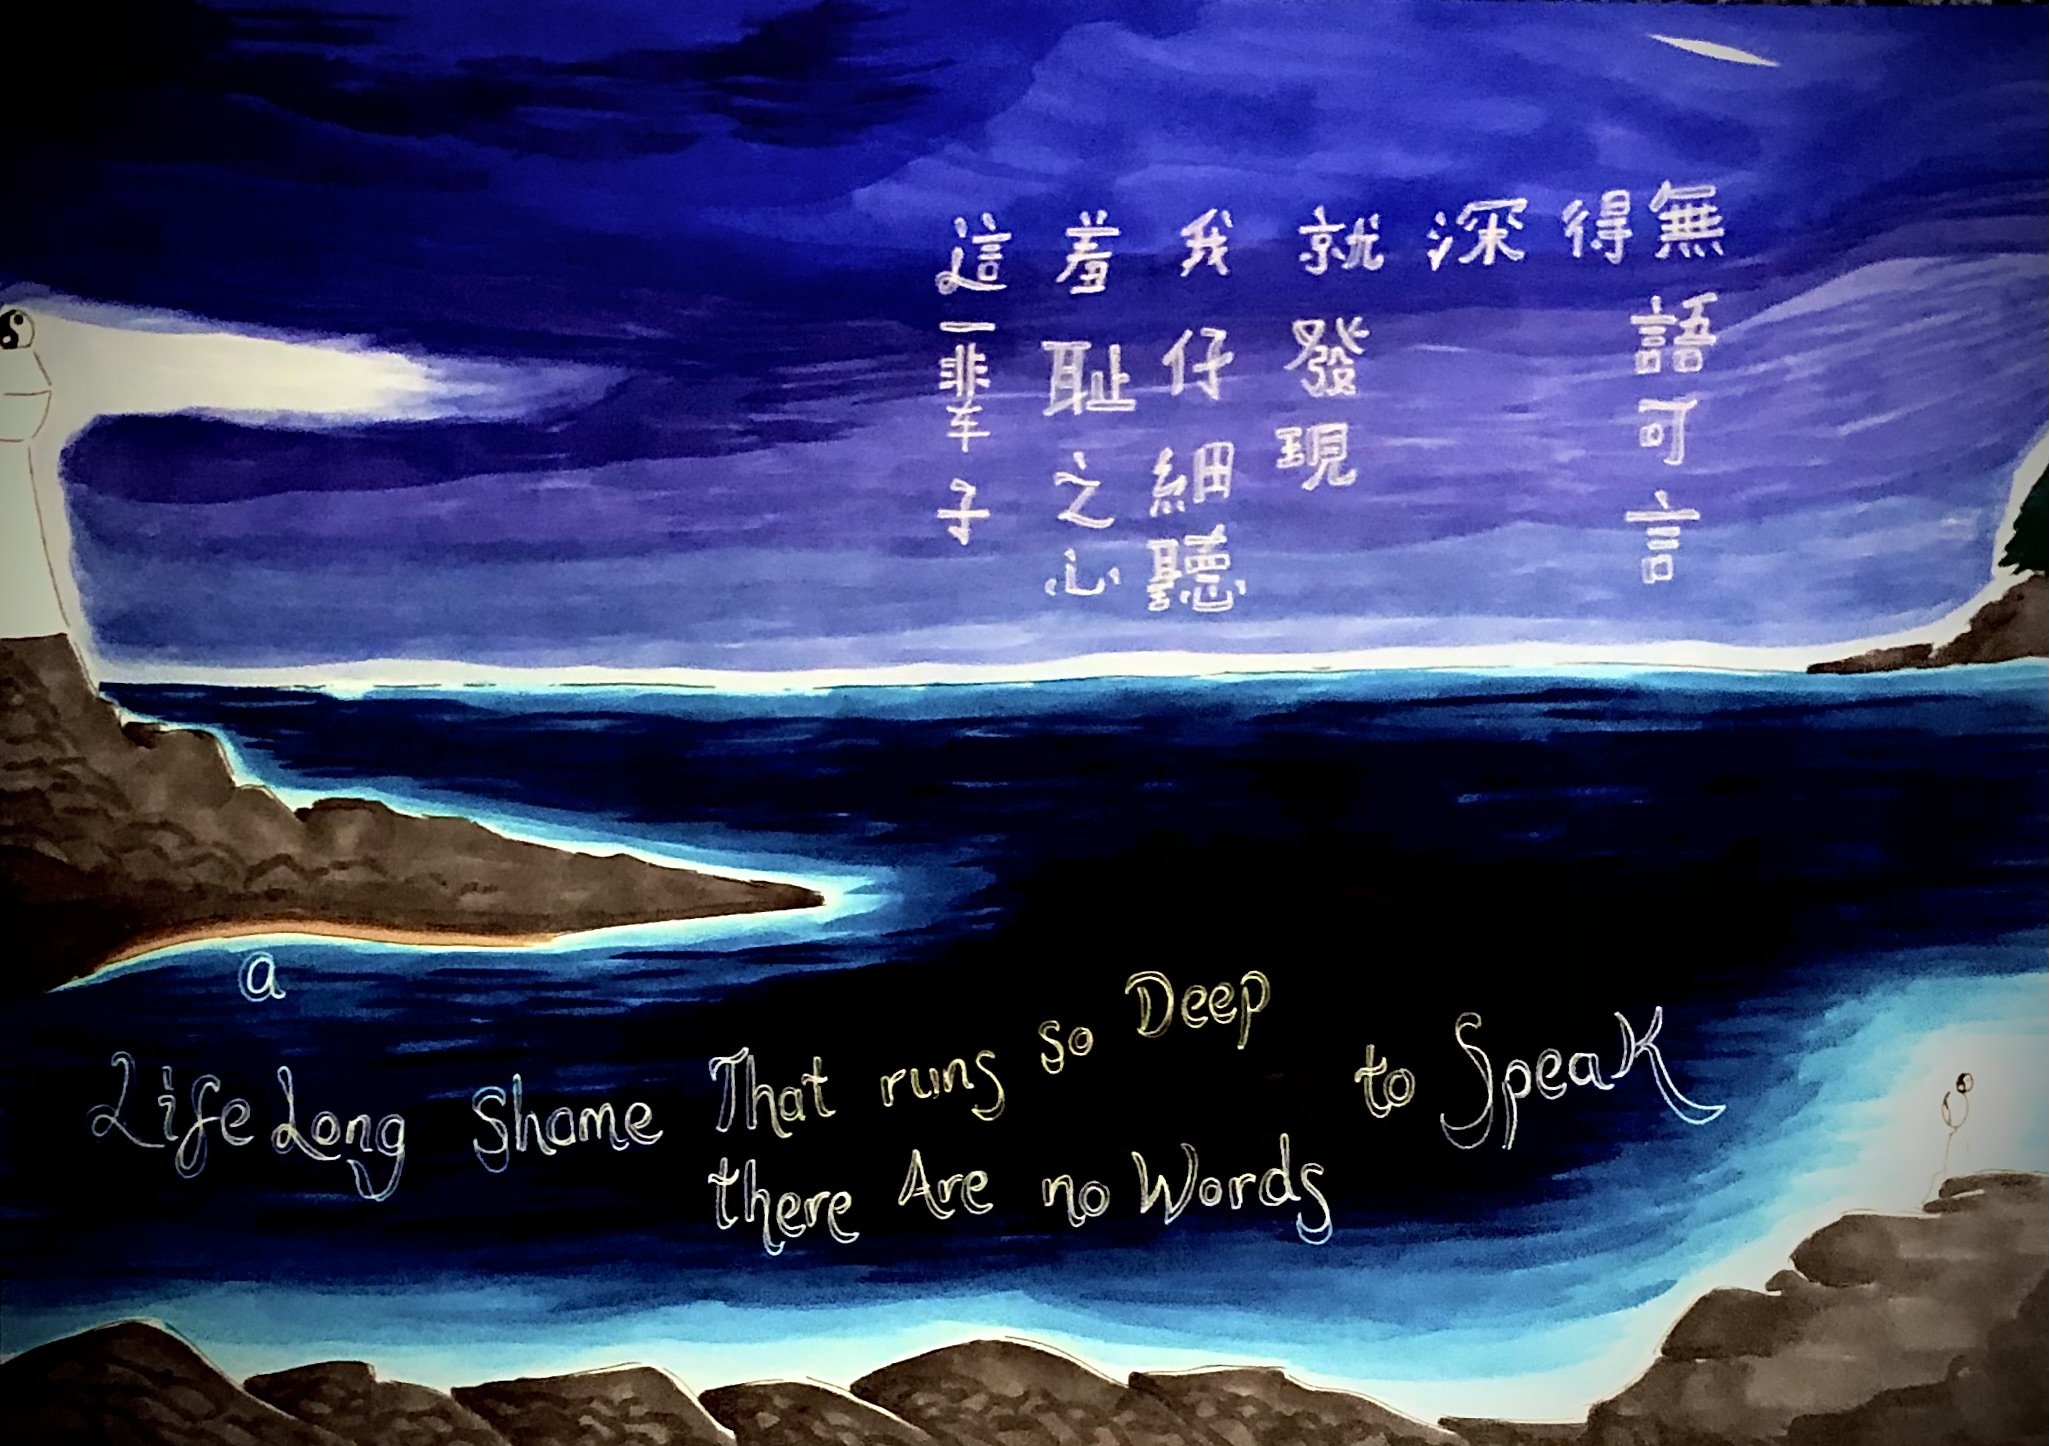 這一輩子
羞耻之心
我仔細聽
就發現
深
得
無語可言
a
LifeLong Shame That runs so Deep
there Are no Words
to Speak